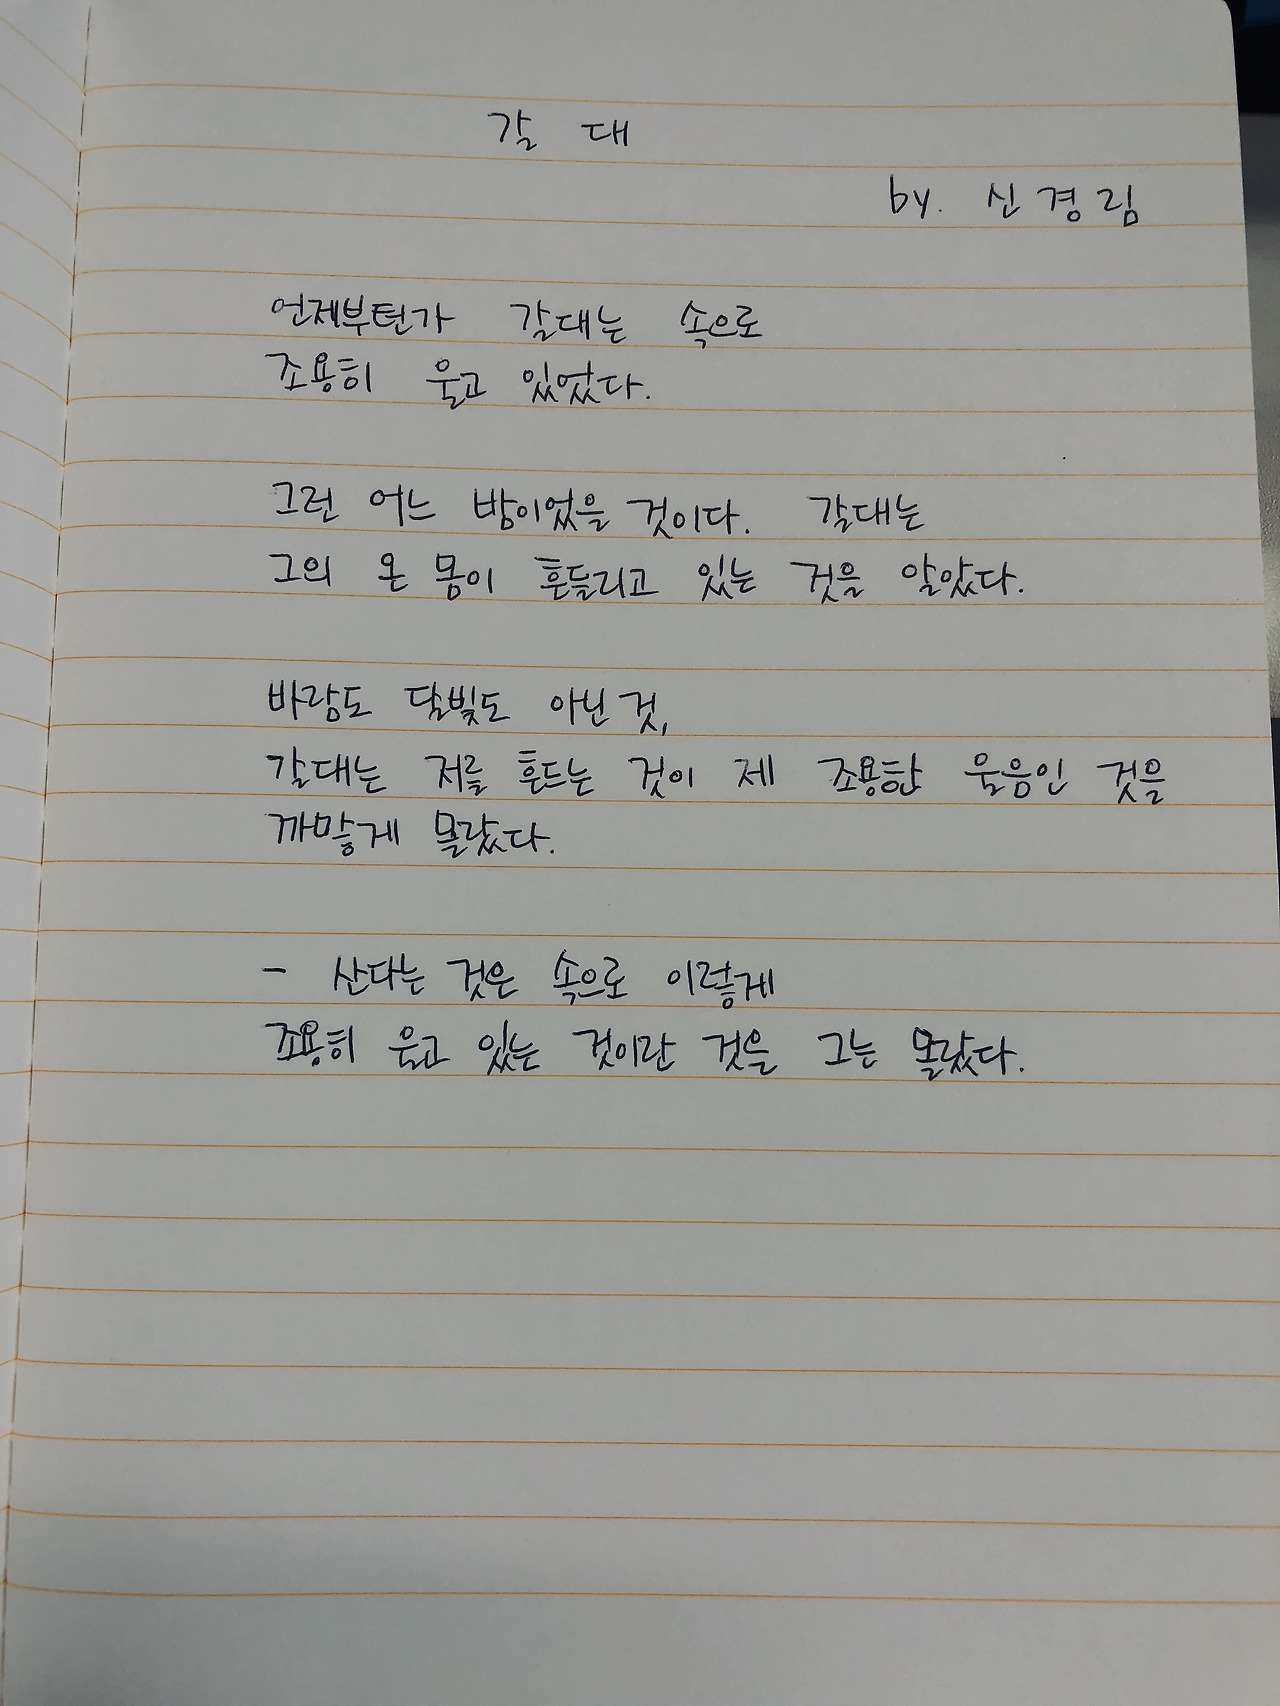 갈 대
by. 신경림
언제부턴가 갈대는 속으로
조용히 울고 있었다.
그런 어느 밤이었을 것이다. 갈대는
그의 온 몸이 흔들리고 있는 것을 알았다.
바람도 달빛도 아닌 것,
갈대는 저를 흔드는 것이 제 조용한 울음인 것을
까맣게 몰랐다.
- 산다는 것은 속으로 이렇게
조용히 울고 있는 것이란 것을 그는 몰랐다.